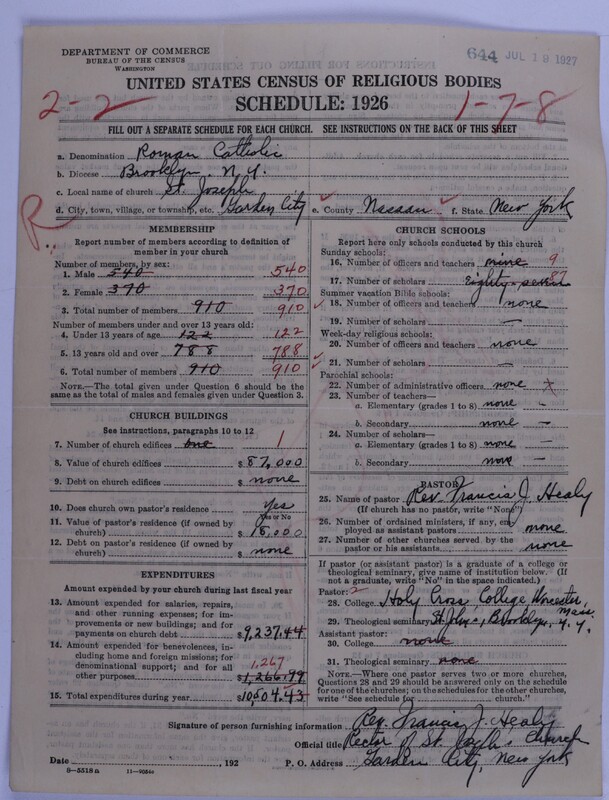 DEPARTMENT OF COMMERCE
BUREAU OF THE CENSUS
WASHINGTON
644 JUL 19 1927
UNITED STATES CENSUS OF RELIGIOUS BODIES
SCHEDULE: 1926
2-2
1-7-8
FILL OUT A SEPARATE SCHEDULE FOR EACH CHURCH. SEE INSTRUCTIONS ON THE BACK OF THIS SHEET
a. Denomination Roman Catholic
b. Diocese Brooklyn, N.Y.
c. Local name of church St. Joseph
R
d. City, town, village, or township, etc. Garden City e. County Nassau f. State New York
MEMBERSHIP
Report number of members according to definition of member in your church
Number of members, by sex:
1. Male 540 540
2. Female 370 370
3. Total number of members 910 910
Number of members under and over 13 years old:
4. Under 13 years of age 122 122
5. 13 years old and over 788 788
6. Total number of members 910 910
NOTE.—The total given under Question 6 should be the same as the total of males and females given under Question 3.
CHURCH BUILDINGS
See instructions, paragraphs 10 to 12
7. Number of church edifices one 1
8. Value of church edifices $ 87,000
9. Debt on church edifices $ none
10. Does church own pastor's residence? Yes
Yes or No
11. Value of pastor's residence (if owned by church) $ 15,000
12. Debt on pastor's residence (if owned by church) $ none
EXPENDITURES
Amount expended by your church during last fiscal year
13. Amount expended for salaries, repairs, and other running expenses; for improvements or new buildings; and for payments on church debt $ 9,237.44
14. Amount expended for benevolences, including home and foreign missions; for denominational support; and for all other purposes 1,267 $ 1,266.99
15. Total expenditures during year $ 10504.43
CHURCH SCHOOLS
Report here only schools conducted by this church
Sunday schools:
16. Number of officers and teachers nine 9
17. Number of scholars Eighty-seven 87
Summer vacation Bible schools:
18. Number of officers and teachers none
19. Number of scholars —
Week-day religious schools:
20. Number of officers and teachers none
21. Number of scholars —
Parochial schools:
22. Number of administrative officers none
23. Number of teachers—
a. Elementary (grades 1 to 8) none —
b. Secondary none —
24. Number of scholars—
a. Elementary (grades 1 to 8) none —
b. Secondary none —
PASTOR
25. Name of pastor Rev. Francis J. Healy
(If church has no pastor, write "None")
26. Number of ordained ministers, if any, employed as assistant pastors none
27. Number of other churches served by the pastor or his assistants none
If pastor (or assistant pastor) is a graduate of a college or theological seminary, give name of institution below. (If not a graduate, write "No" in the space indicated.)
Pastor: 2
28. College Holy Cross College Worcester, Mass.
29. Theological seminary St. John's, Brooklyn, N.Y.
Assistant pastor:
30. College none
31. Theological seminary none
NOTE.—Where one pastor serves two or more churches, Questions 28 and 29 should be answered only on the schedule for one of the churches; on the schedules for the other churches, write "See schedule for church."
Signature of person furnishing information Rev. Francis J. Healy
Official title Rector of St. Joseph's Church
Date , 192 P. O. Address Garden City, New York
8—5518 a